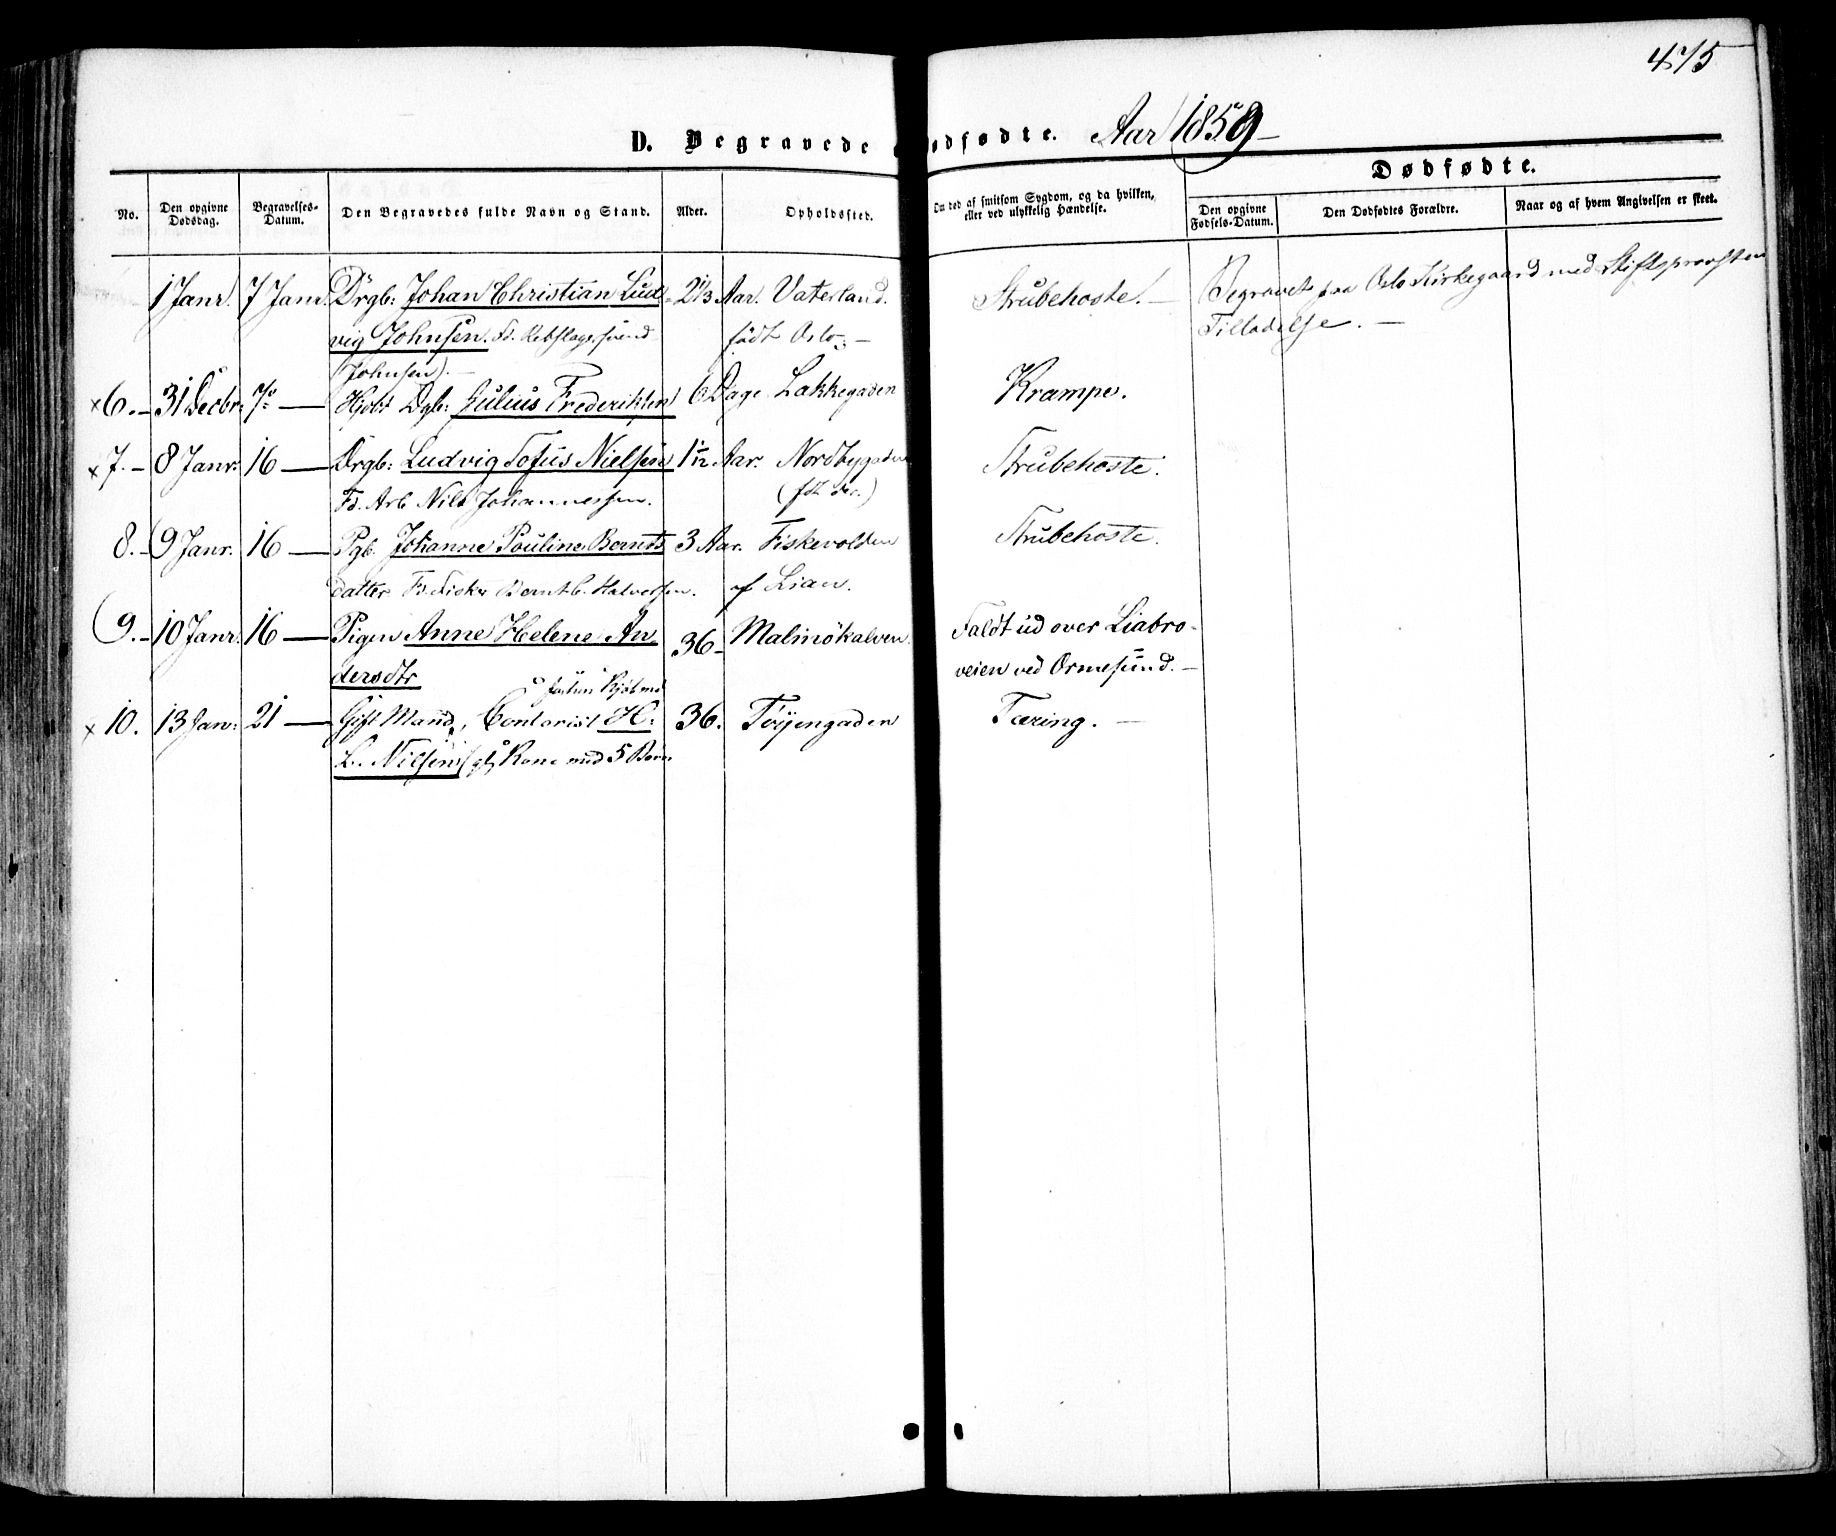 475
D. Begravede odfødte. Aar 1859
Dødfødte.
No.
Den opgivne Dødsdag.
Begravelses-Datum.
Den Begravedes fulde Navn og Stand.
Alder.
Opholdssted.
Om død af smitsom Sygdom, og da hvilken, eller ved ulykkelig Hændelse.
Den opgivne Fødsels-Datum.
Den Dødfødtes Forældre.
Naar og af hvem Angivelsen er skeet.
1 Janr. 7 Janr. Drgb: Johan Christian Lud 2 1/3 Aar. Vaterland. Strubehoste. — Begravet paa Oslo Kirkegaard med Stiftsprovsten
vig Johnsen. F. Rebslagersvend født Oslo — Tilladelse. —
(Johnsen). —
× 6. – 31 Decbr: 7 — Hjdbt Dgb: Julius Frederiksen 6 Dage Lakkegaden Krampe.
× 7. – 8 Janr: 16 — Drgb: Ludvig Tofus Nielsen 1 1/12 Aar. Nordbygaden Strubehoste.
Fd. Arb Nils Johannessen.
8. – 9 Janr. 16 — Pgb. Johanne Pouline Bernts 3 Aar. Fiskevolden Strubehoste.
datter Fd. Fisker Bernt C. Halvorsen. af Lian.
9. – 10 Janr: 16 — Pigen Anne Helene An 36 – Malmökalven. Faldt ud over Liabro-
dersdtr veien ved Ormesund. —
× 10. 13 Jan: 21 — Gift Mand, Contorist H. 36. Töyengaden Tæring. —
L. Nilsen Kone med 5 Børn